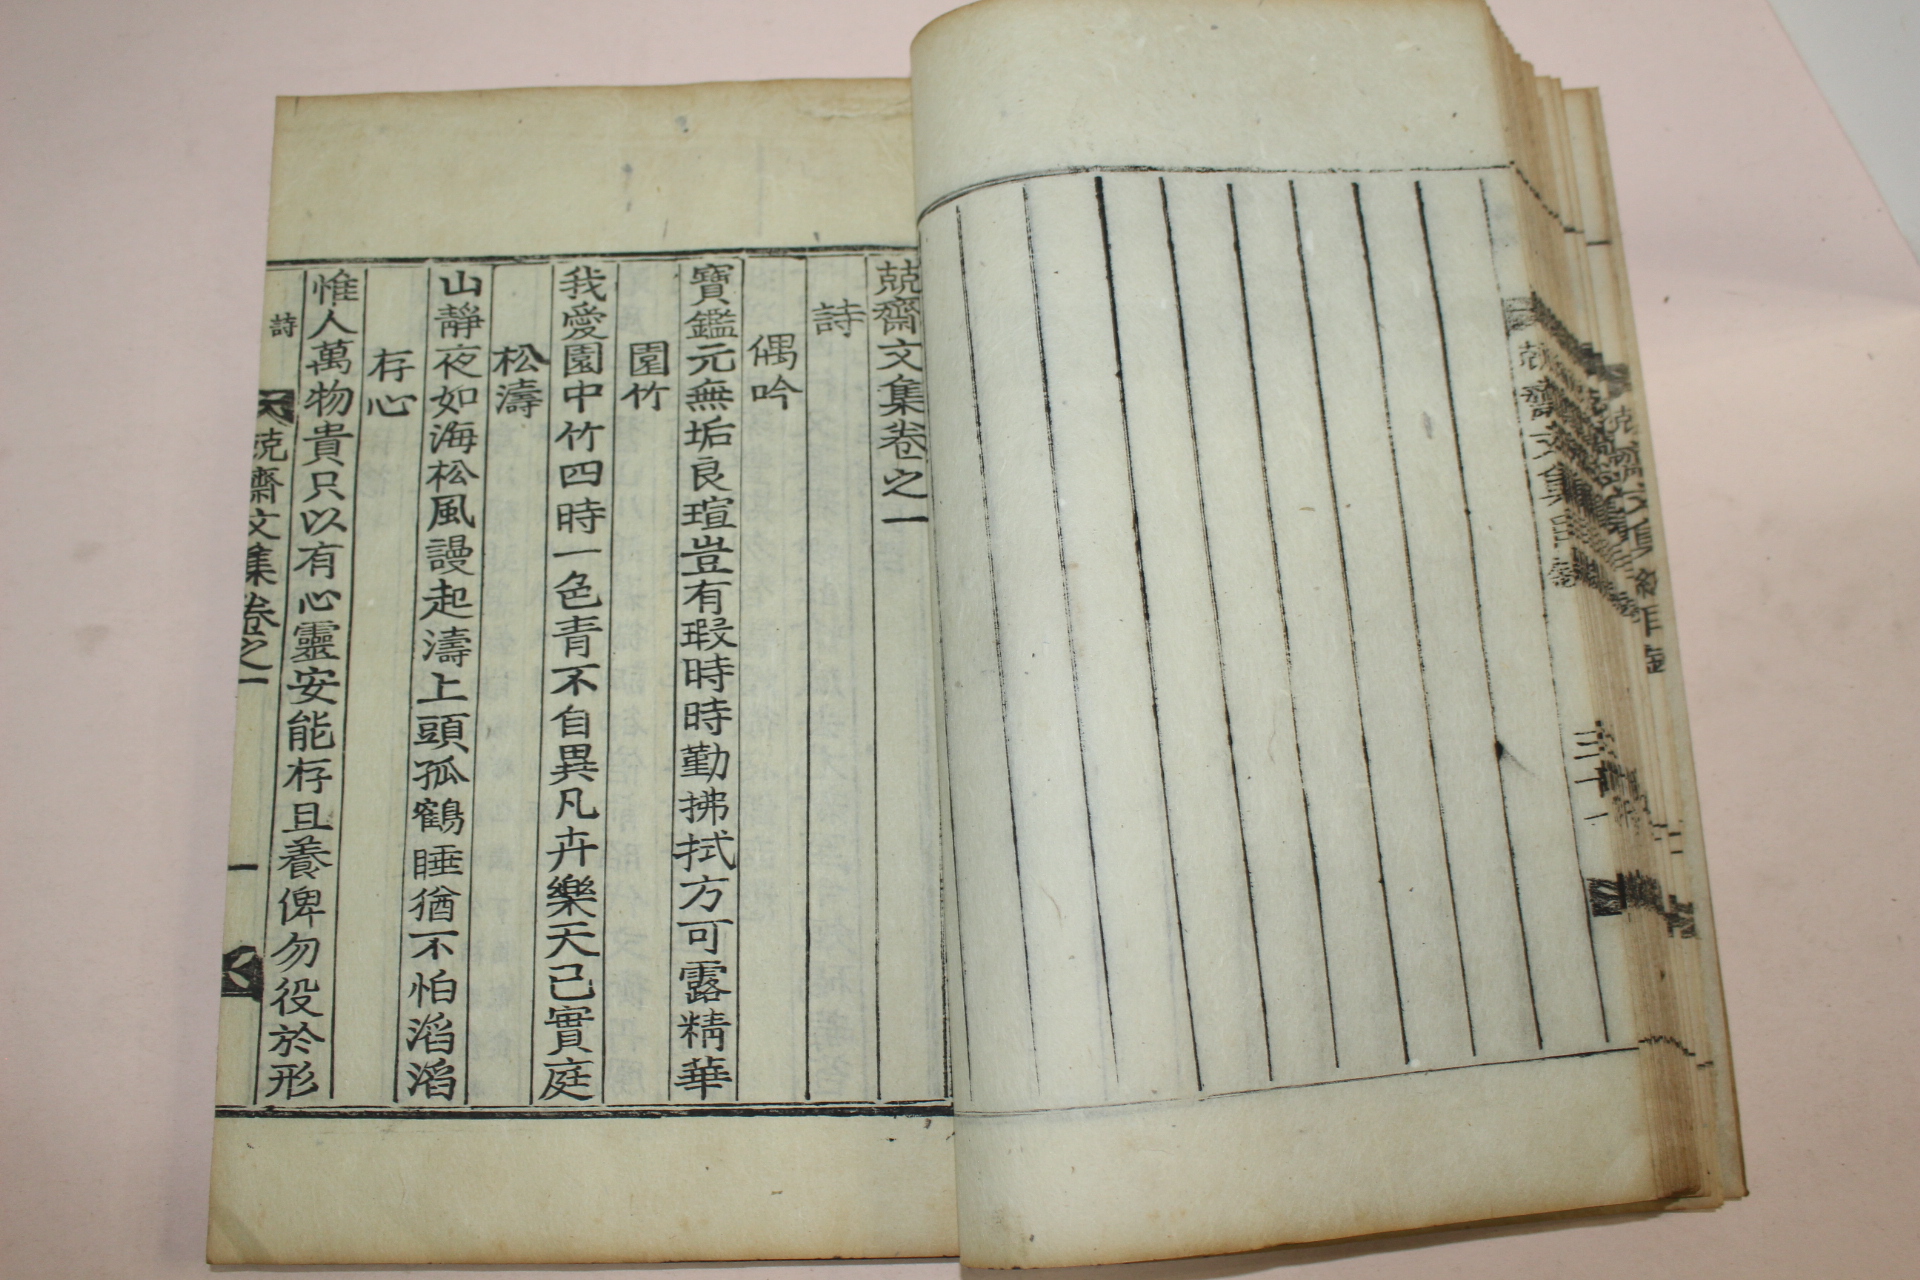 兢齋文集卷之一
詩
偶吟
寶鑑元無垢良瑄豈有瑕時時勤拂拭方可露精華
園竹
我愛園中竹四時一色青不自異凡卉樂天已實庭
松濤
山靜夜如海松風謾起濤上頭孤鶴睡猶不怕滔滔
存心
惟人萬物貴只以有心靈安能存且養俾勿役於形
詩
兢齋文集卷之一
一